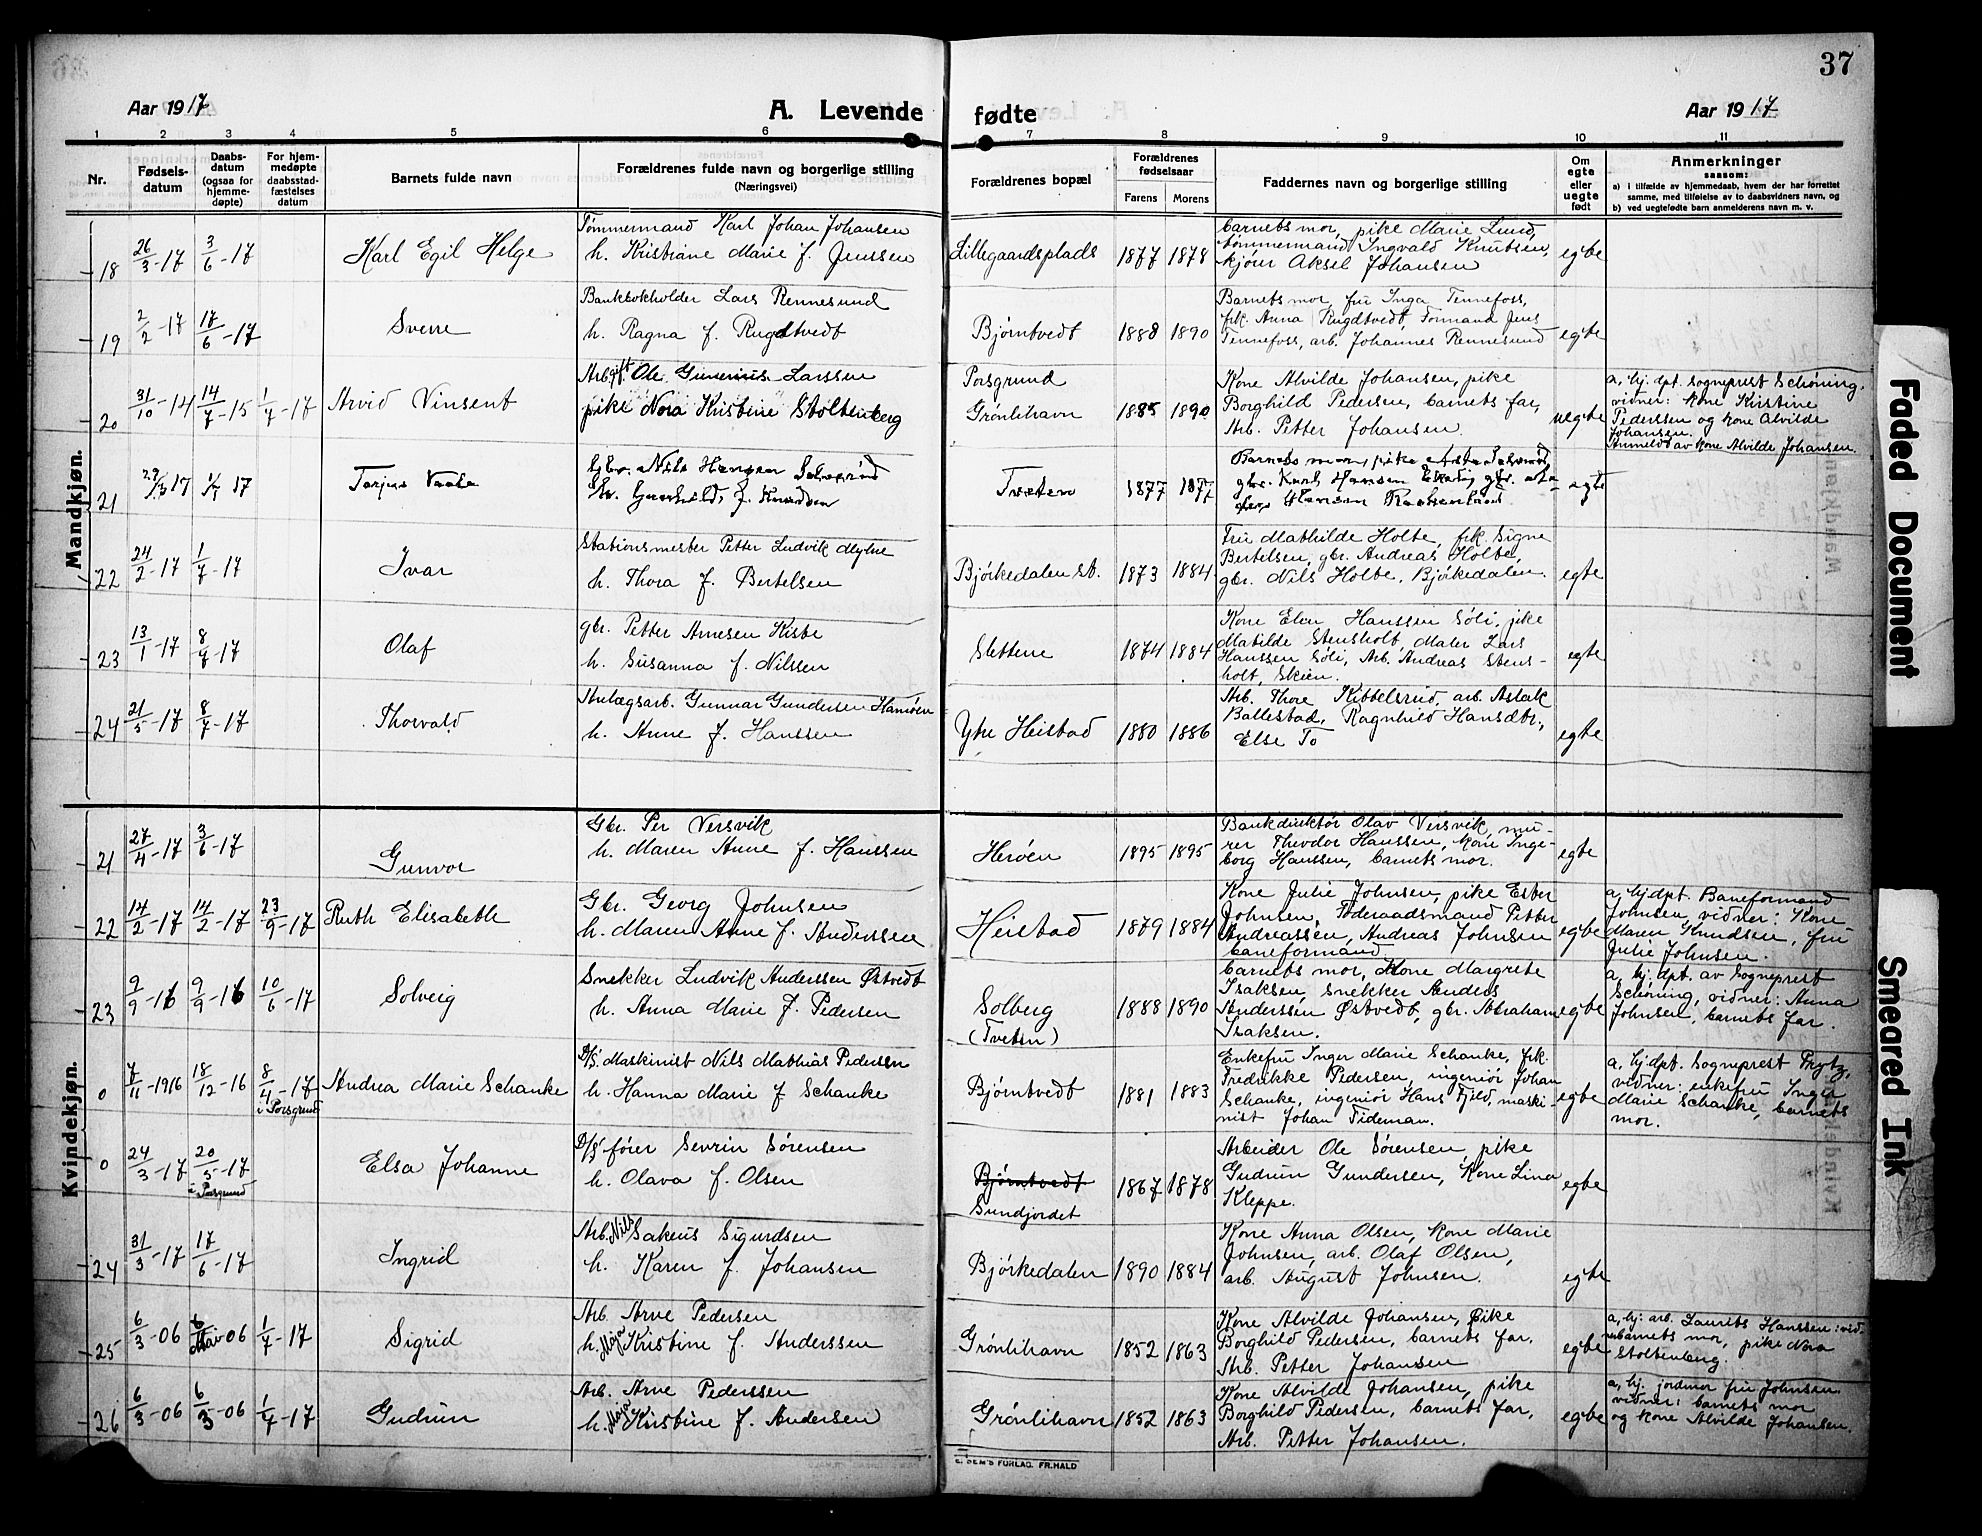 37
Aar 1917
A. Levende fødte
Aar 1917
1 2 3 4 5 6 7 8 9 10 11
Nr.
Fødsels-
datum
Daabs-
datum
(ogsaa for
hjemme-
døpte)
For hjem-
medøpte
daabsstad-
fæstelses
datum
Barnets fulde navn
Forældrenes fulde navn og borgerlige stilling
(Næringsvei)
Forældrenes bopæl
Forældrenes
fødselsaar
Farens Morens
Faddernes navn og borgerlige stilling
Om
egte
eller
uegte
født
Anmerkninger
saasom:
a) i tilfælde av hjemmedaab, hvem der har forrettet
samme, med tilføielse av to daabsvidners navn, og
b) ved uegtefødte barn anmelderens navn m. v.
Mandkjøn.
18 26/3-17 3/6-17 Karl Egil Helge
Tømmermand Karl Johan Johansen
h. Kristiane Marie f. Jenssen
Lillegaardsplads 1877 1878
barnets mor, pike Marie Lund,
tømmermand Ingvald Knutsen,
kjører Aksel Johansen
egte
19 2/2-17 17/6-17 Sverre
Bankbokholder Lars Rennesund
h. Ragna f. Rugdtvedt
Bjørntvedt 1888 1890
Barnets mor, fru Inga Tennefoss,
frk. Anna Rugdtvedt, Formand Jens
Tennefoss, arb. Johannes Rennesund
egte
20 31/10-14 14/7-15 1/7-17 Arvid Vinsent
Arb. gift Ole Gunerius Larssen
pike Nora Kristine Stoltenberg
Porsgrund
Grønlihavn 1885 1890
Kone Alvilde Johansen, pike
Borghild Pedersen, barnets far,
Arb. Petter Johansen.
uegte
a, hj. dpt. sogneprest Schøning.
vidner: kone Kirstine
Pederssen og kone Alvilde
Johansen.
Anmeldt av kone Alvilde Johansen.
21 1/7 17 Torjus
Gbr. Nils Hansen
f. Knudsen
Tveten 1877 1877
Barnets mor, pike
gbr. Karl Hansen
Hansen
egte
22 24/2-17 1/7-17 Ivar
Stationsmester Petter Ludvik Myhre
h. Thora f. Bertelsen
Bjørkedalen st. 1873 1884
Fru Mathilde Holte, frk. Signe
Bertelsen, gbr. Andreas Holte,
gbr. Nils Holte, Bjørkedalen.
egte
23 13/1-17 8/7-17 Olaf
gbr. Petter Arnesen Kiste
h. Susanna f. Nilssen
Slettene 1874 1884
Kone Elen Hanssen Søli, pike
Matilde Stensholt, Maler Lars
Hanssen Søli, Arb. Andreas Stens-
holt, Skien.
egte
24 21/5-17 8/7-17 Thorvald
Anlægsarb. Gunnar Gundersen
h. Anne f. Hanssen
Ytre Heistad 1880 1886
Arb. Thore Kittelsrud, arb. Aslak
Ballestad, Ragnhild Hansdtr.,
Else To
egte
Kvindekjøn.
21 27/4-17 3/6-17 Gunvor
Gbr. Per Versvik
h. Maren Anne f. Hanssen
Herøen 1895 1895
Bankdirektør Olav Versvik, mu-
rer Theodor Hanssen, kone Inge-
borg Hanssen, barnets mor.
egte
22 14/2-17 14/2-17 23/9-17 Ruth Elisabeth
Gbr. Georg Johnsen
h. Maren Anne f. Anderssen
Heistad 1879 1884
Kone Julie Johnsen, pike Ester
Johnsen, Føderaadsmand Petter
Andreassen, Andreas Johnsen
baneformand
egte
a, hjdpt. Baneformand
Johnsen, vidner: Kone
Maren Knudsen, fru
Julie Johnsen.
23 9/9-16 9/9-16 10/6-17 Solveig
Snekker Ludvik Anderssen Østvedt
h. Anna Marie f. Pedersen
Solberg
(Tveten)
1888 1890
barnets mor, Kone Margrete
Isaksen, snekker Anders
Anderssen Østvedt, gbr. Abraham
Isaksen.
egte
a, hj. dpt. av Sogneprest
Schøning, vidner: Anna
Johnsen, barnets far.
0 7/11-1916 18/12-16 8/4-17
i Porsgrund
Andrea Marie Schanke
D/S. Maskinist Nils Mathias Pedersen
h. Hanna Marie f Schanke
Bjørntvedt 1881 1883
Enkefru Inger Marie Schanke, frk.
Fredrikke Pedersen, ingeniør Johan
Schanke, ingeniør Hans Fjeld, maski-
nist Johan Tideman.
egte
a, hjdpt. Sogneprest Frytz,
vidner: enkefru Inger
Marie Schanke, barnets
mor.
0 24/3-17 20/5-17
i Porsgrund
Elsa Johanne
D/S-fører Sevrin Sørensen
h. Olava f. Olsen
Bjørntvedt
Sundjordet
1867 1878
Arbeider Ole Sørensen, pike
Gudrun Gundersen, Kone Lina
Kleppe.
egte
24 31/3-17 17/6-17 Ingrid
Arb. Nils Sakeus Sigurdsen
h. Karen f. Johansen
Bjørkedalen 1890 1884
Kone Anna Olsen, kone Marie
Johnsen, arb. Olaf Olsen,
arb. August Johnsen.
egte
25 6/3-06 6/Mai-06 1/7-17 Sigrid
Arb. Arve Pedersen
h. Maja Kristine f. Anderssen
Grønlihavn 1852 1863
Kone Alvilde Johansen, Pike
Borghild Pedersen, barnets far,
Arb. Petter Johansen
egte
a, hj: arb. Laurits Hanssen: vid-
barnets mor, pike Nora
Stoltenberg.
26 6/3-06 6/3-06 1/7-17 Gudrun
Arb. Arve Pederssen
h. Maja Kristine f. Andersen
Grønlihavn 1852 1863
Kone Alvilde Johansen, pike
Borghild Pedersen, barnets far,
Arb. Petter Johansen.
egte
a, hj. jordmor fru Johnsen
vidner: barnets mor
og kone Alvilde Johansen.
E. SEM'S FORLAG. FR.HALD
Faded Document
Smeared Ink